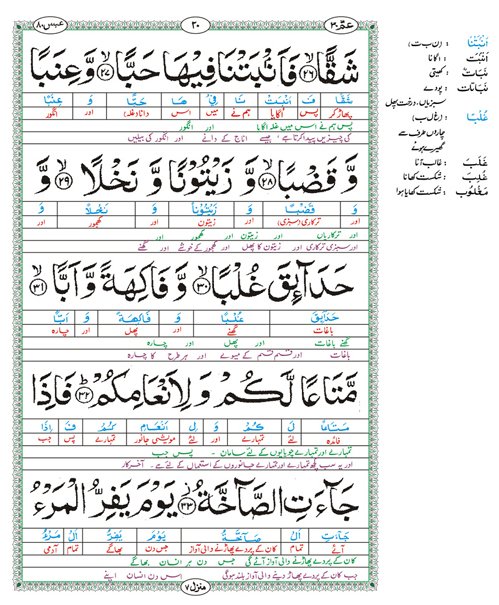 عبس ٨٠ ٣٠ عمّ ٣٠
شَقًّا ۙ﴿٢٦﴾ فَاَنْۢبَتْنَا فِيْهَا حَبًّا ۙ﴿٢٧﴾ وَّ عِنَبًا
شَقًّا فَ اَنْۢبَتْ نَا فِيْ هَا حَبًّا وَ عِنَبًا
پھاڑ کر پس اُگایا ہم نے میں اس دانا (غلہ) اور انگور
پس ہم نے اس میں غلہ اگایا اور انگور
کی چیزیں پیدا کرتا ہے جیسے اناج کے دانے اور انگور کی بیلیں
وَّ قَضْبًا ۙ﴿٢٨﴾ وَّ زَيْتُوْنًا وَّ نَخْلًا ۙ﴿٢٩﴾ وَّ
وَ قَضْبًا وَ زَيْتُوْنًا وَ نَخْلًا وَ
اور ترکاری (سبزی) اور زیتون اور کھجور اور
اور ترکاریاں اور زیتون اور کھجور اور
اور سبزی ترکاری اور زیتون کا پھل اور کھجور کے خوشے اور گھنے
حَدَآئِقَ غُلْبًا ۙ﴿٣٠﴾ وَّ فَاكِهَةً وَّ اَبًّا ۙ﴿٣١﴾
حَدَآئِقَ غُلْبًا وَ فَاكِهَةً وَ اَبًّا
باغات گھنے اور پھل اور چارہ
گھنے باغات اور پھل اور چارہ
باغات اور قسم قسم کے میوے اور ہر طرح کا چارہ
مَّتَاعًا لَّكُمْ وَ لِاَنْعَامِكُمْ ؕ﴿٣٢﴾ فَاِذَا
مَتَاعًا لَ كُمْ وَ لِ اَنْعَامِ كُمْ فَ اِذَا
فائدہ لئے تمہارے اور لئے مویشی جانور تمہارے پس جب
تمہارے اور تمہارے چوپایوں کے لئے سامان۔ پس جب
اور یہ سب کچھ تمہارے اور تمہارے جانوروں کے استعمال کے لئے ہے۔ آخر کار
جَآءَتِ الصَّآخَّةُ ۫﴿٣٣﴾ يَوْمَ يَفِرُّ الْمَرْءُ
جَآءَتِ الْ صَآخَّةُ يَوْمَ يَفِرُّ الْ مَرْءُ
آئے تمام کان کے پردے پھاڑنے والی آواز جس دن بھاگے تمام آدمی
کان کے پردے پھاڑنے والی آواز آئے گی جس دن ہر انسان بھاگے گا
جب کان کے پردے پھاڑ دینے والی آواز بلند ہوگی اس دن انسان اپنے
منزل ٧
اَنْۢبَتْنَا : (ن ب ت)
اَنْۢبَتَ : اگانا
نَبَاتٌ : کھیتی
نَبَاتَات : پودے
سبزیاں، درخت، پھل
غُلْبًا : (غ ل ب)
چاروں طرف سے
گھیرے ہوئے
غَلَبَ : غالب آنا
غُلِبَ : شکست کھانا
مَغْلُوْب : شکست کھایا ہوا